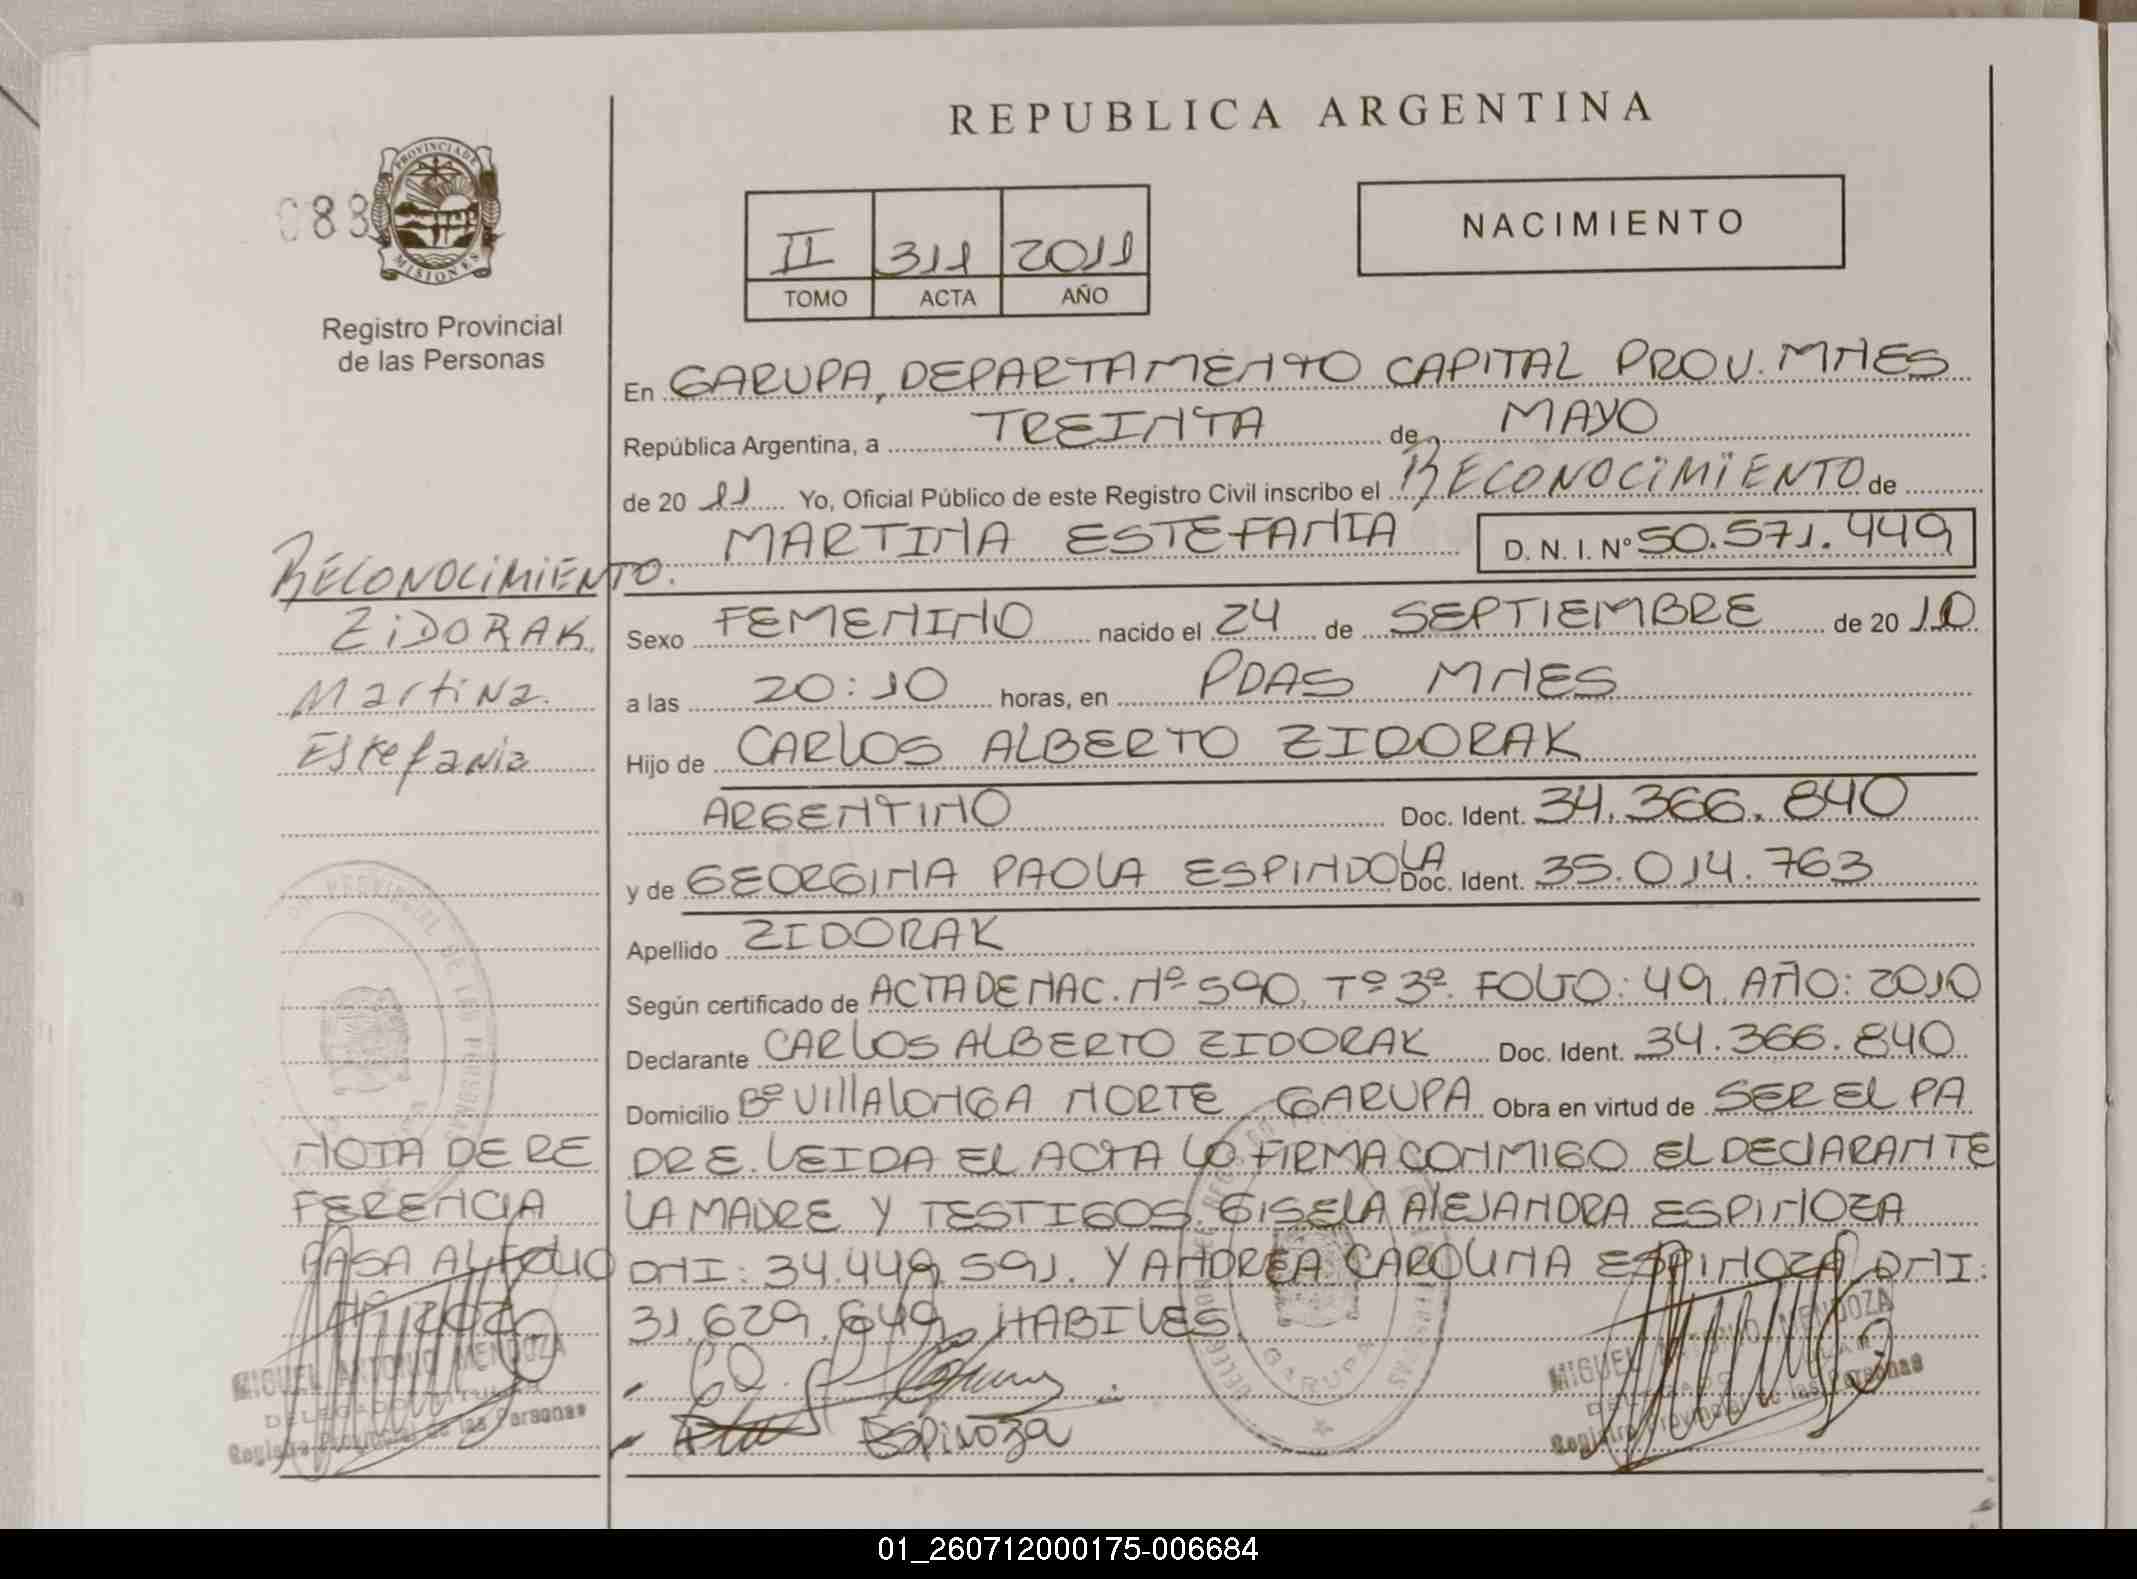 REPUBLICA ARGENTINA
088
PROVINCIA DE
MISIONES
Registro Provincial
de las Personas
II 311 2011
TOMO ACTA AÑO
NACIMIENTO
En GARUPA, DEPARTAMENTO CAPITAL PROV. MNES
República Argentina, a TREINTA de MAYO
de 20 11 Yo, Oficial Público de este Registro Civil inscribo el RECONOCIMIENTO de
MARTINA ESTEFANIA D. N. I. Nº 50.571.449
RECONOCIMIENTO.
ZIDORAK,
Martina.
Estefania
Sexo FEMENINO nacido el 24 de SEPTIEMBRE de 20 10
a las 20:10 horas, en PDAS MNES
Hijo de CARLOS ALBERTO ZIDORAK
ARGENTINO Doc. Ident. 34.366.840
y de GEORGINA PAOLA ESPINDOLA Doc. Ident. 35.014.763
Apellido ZIDORAK
Según certificado de ACTA DE NAC. Nº 590, Tº 3º. FOLIO: 49, AÑO: 2010
Declarante CARLOS ALBERTO ZIDORAK Doc. Ident. 34.366.840
Domicilio Bº VILLALONGA NORTE GARUPA Obra en virtud de SER EL PA
DRE. LEIDA EL ACTA LO FIRMA CONMIGO EL DECLARANTE
LA MADRE Y TESTIGOS. GISELA ALEJANDRA ESPINOZA
DNI: 34.449.591. Y ANDREA CAROLINA ESPINOZA DNI:
31.629.649, HABILES.
Espinoza
NOTA DE RE
FERENCIA
PASA AL FOLIO
MIGUEL ANTONIO MENDOZA
DELEGADO TITULAR
Registro Provincial de las Personas
GARUPA
MIGUEL ANTONIO MENDOZA
DELEGADO TITULAR
Registro Provincial de las Personas
01_260712000175-006684